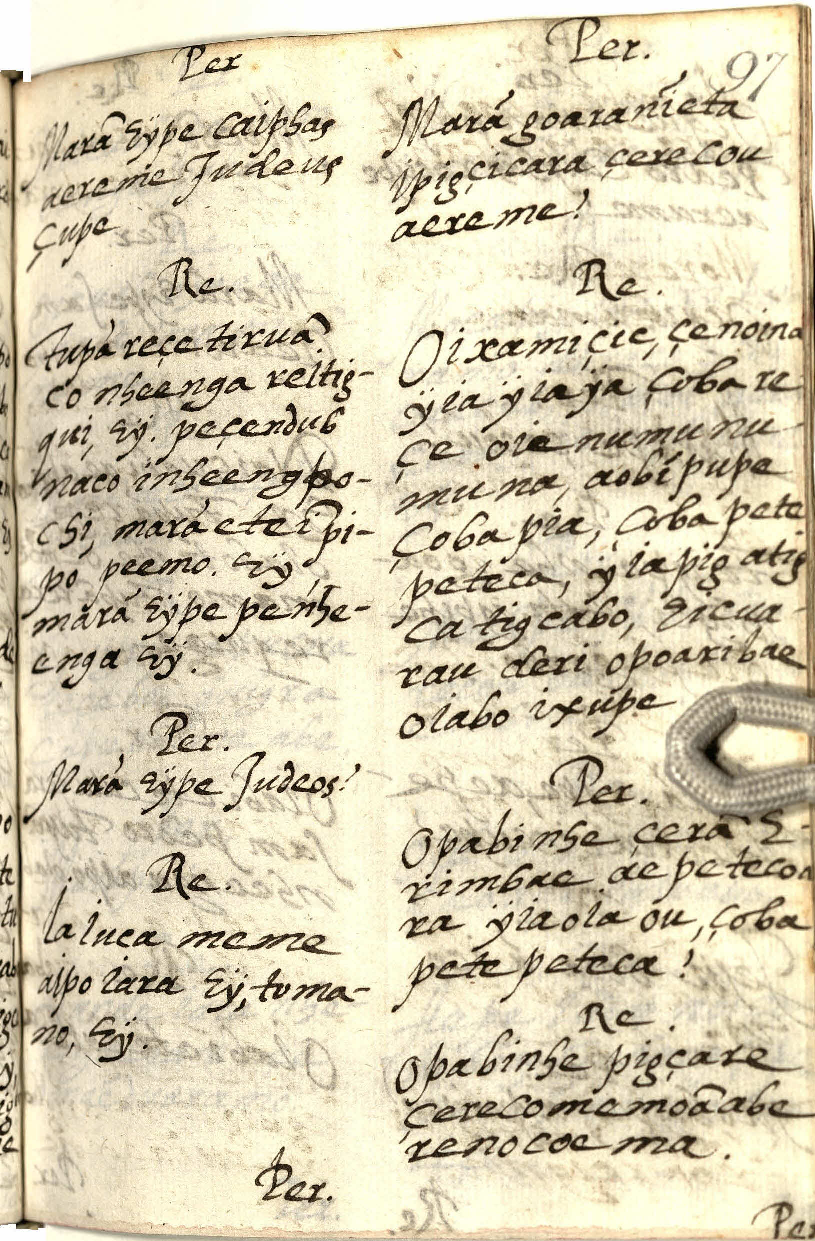 Per
Marã Eÿpe caiphas
aereme Judeus
çupe
Re.
Tupà reçe tiruã
co nheenga reitig-
qui, Eÿ. peçendub
naco inheengpo-
chi, marà ete ĩ pi-
po peemo. Eÿ
marà Eÿpe penhe-
enga Eÿ.
Per.
Marà Eÿpe Judeos?
Re.
Iaiuca meme
aipo iara Eÿ, toma-
no, Eÿ.
Per.
Per.
97
Marà goaranieta
ipigçicara çerecou
aereme?
Re.
Oixamiçie, çenoina
ÿia ÿia ÿa çoba re
çe oie numunu
muna, aobi pupe
çoba pia, çoba pete
peteca, ÿia pig atig
ca tigcabo, Eicua-
rau deri opoaribae
oiabo ixupe
Per.
Opabinhe çerã E-
rimbae ae petecoa
ra ÿia oia ou, çoba
pete peteca?
Re.
Opabinhe pigçare
çerecomemoãabe
reno coema.
Per